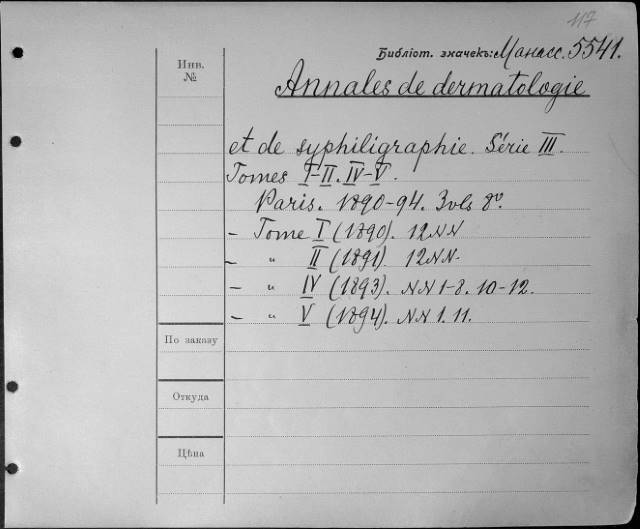 117
Библіот. значекъ: Манасс. 5541.
Инв.
№
Annales de dermatologie
et de syphiligraphie. Série III.
Tomes I-II. IV-V.
Paris. 1890-94. 3vls 8º.
- Tome I (1890). 12NN
- " II (1891). 12NN.
- " IV (1893). NN 1-8. 10-12.
- " V (1894). NN 1. 11.
По заказу
Откуда
Цѣна